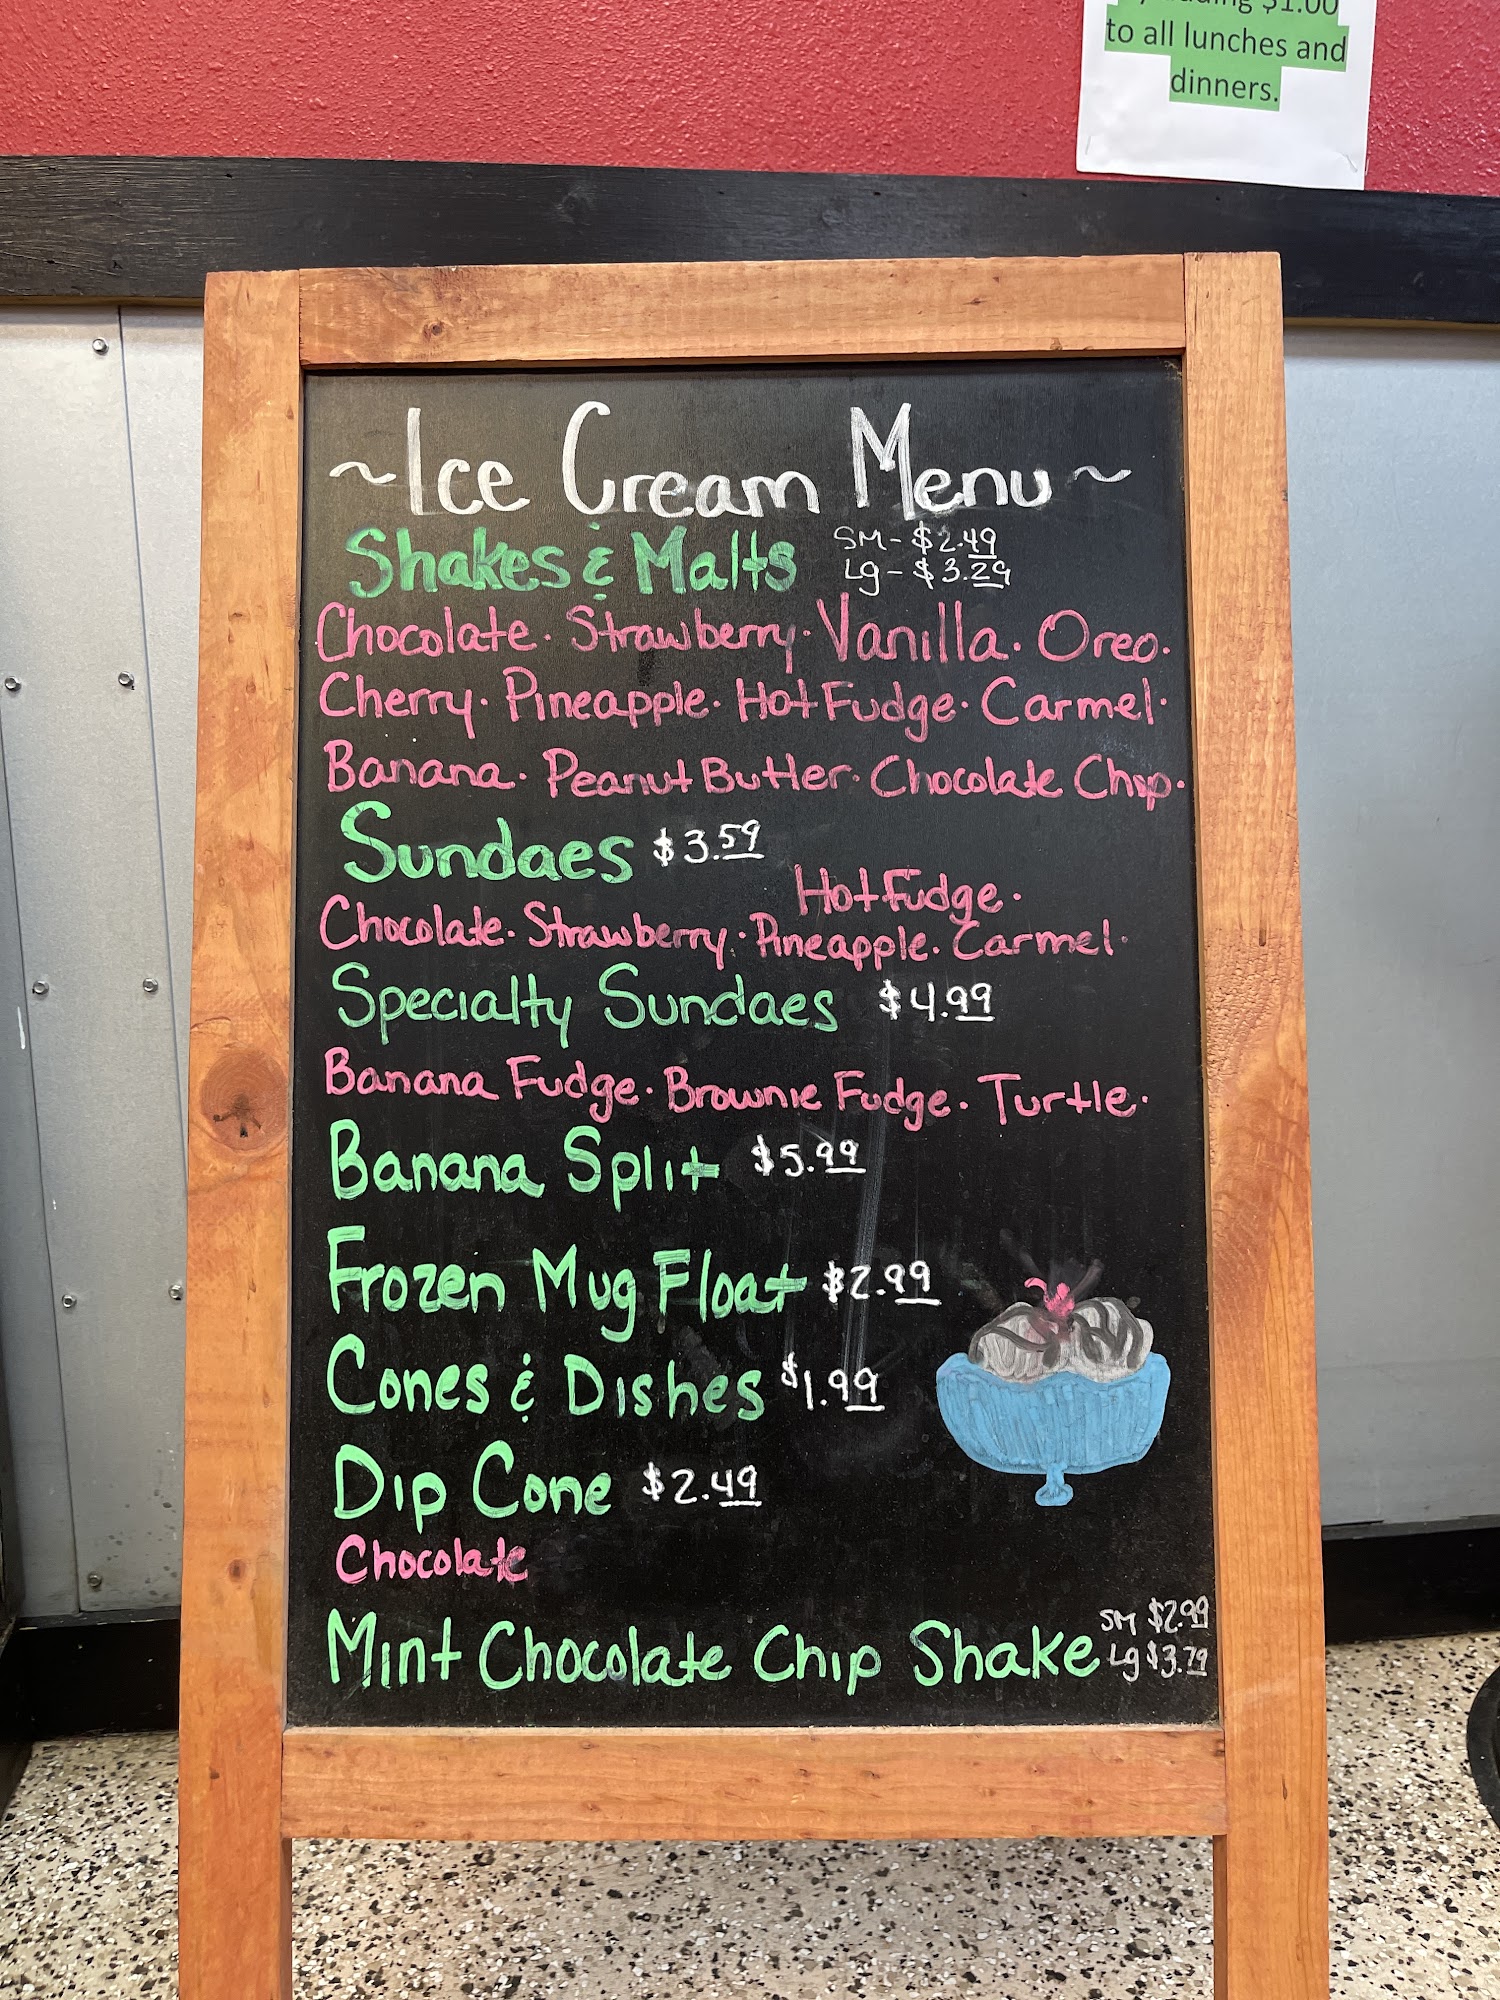 $1.00
to all lunches and
dinners.
~Ice Cream Menu~
Shakes & Malts SM- $2.49
Lg- $3.29
Chocolate. Strawberry. Vanilla. Oreo.
Cherry. Pineapple. Hot Fudge. Carmel.
Banana. Peanut Butter. Chocolate Chip.
Sundaes $3.59
Hot Fudge.
Chocolate. Strawberry. Pineapple. Carmel.
Specialty Sundaes $4.99
Banana Fudge. Brownie Fudge. Turtle.
Banana Split $5.99
Frozen Mug Float $2.99
Cones & Dishes $1.99
Dip Cone $2.49
Chocolate
Mint Chocolate Chip Shake SM $2.99
Lg $3.79